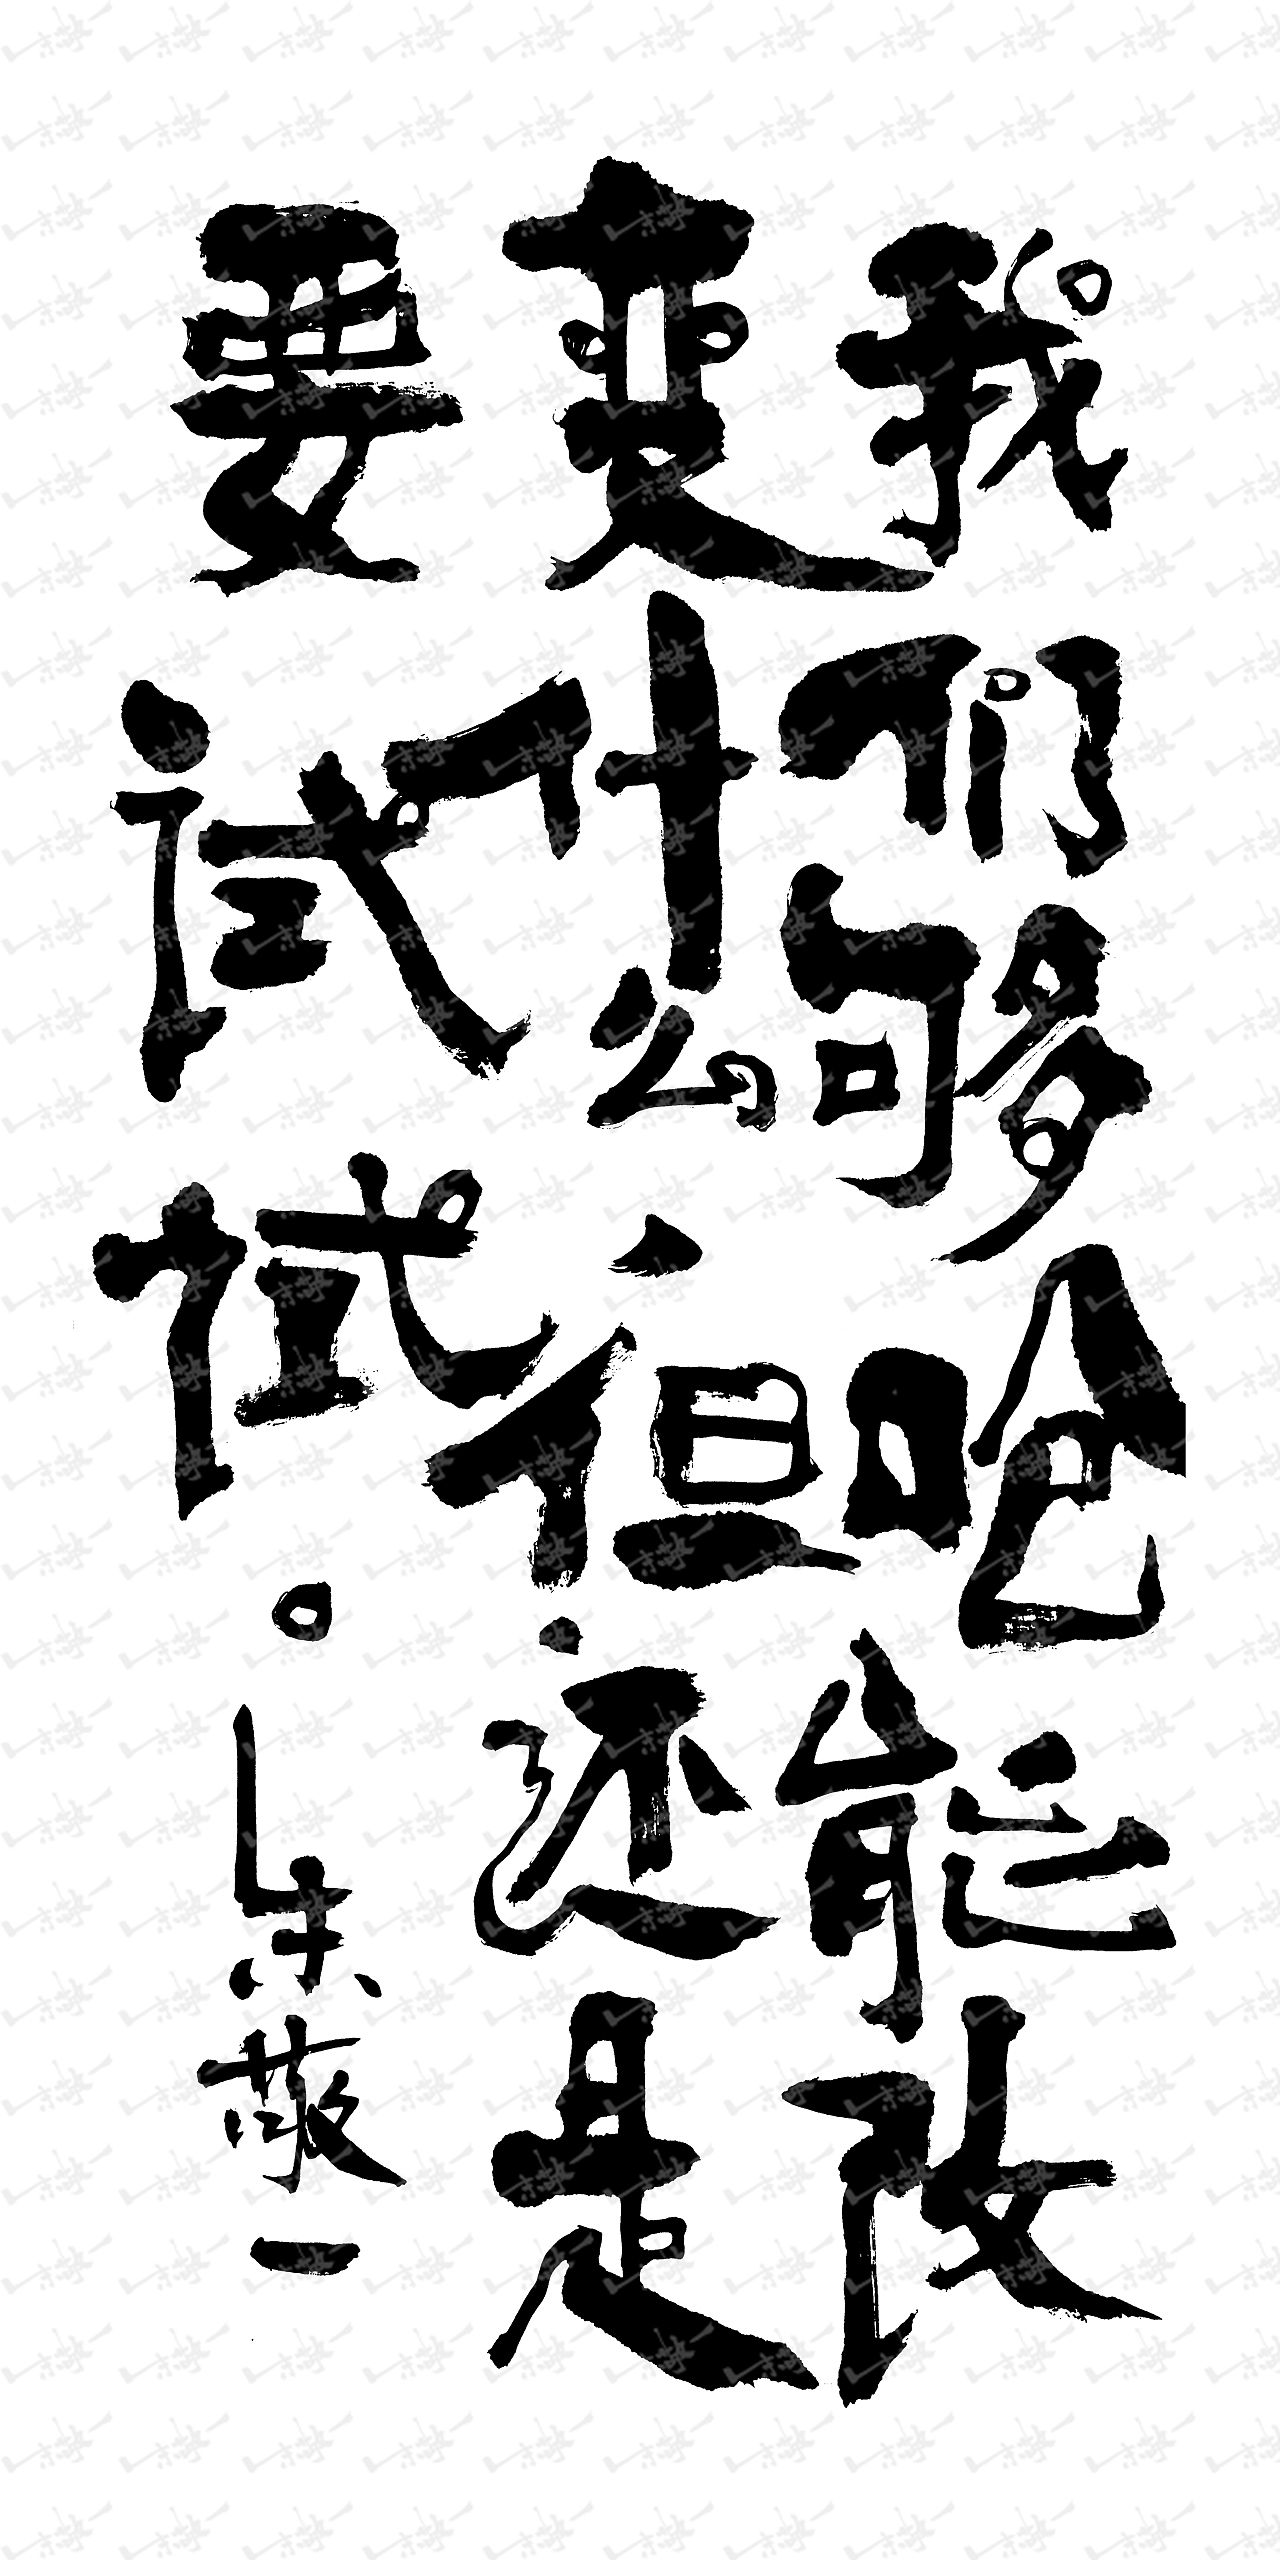 我们够呛能改
变什么，但还是
要试试。—朱敬一